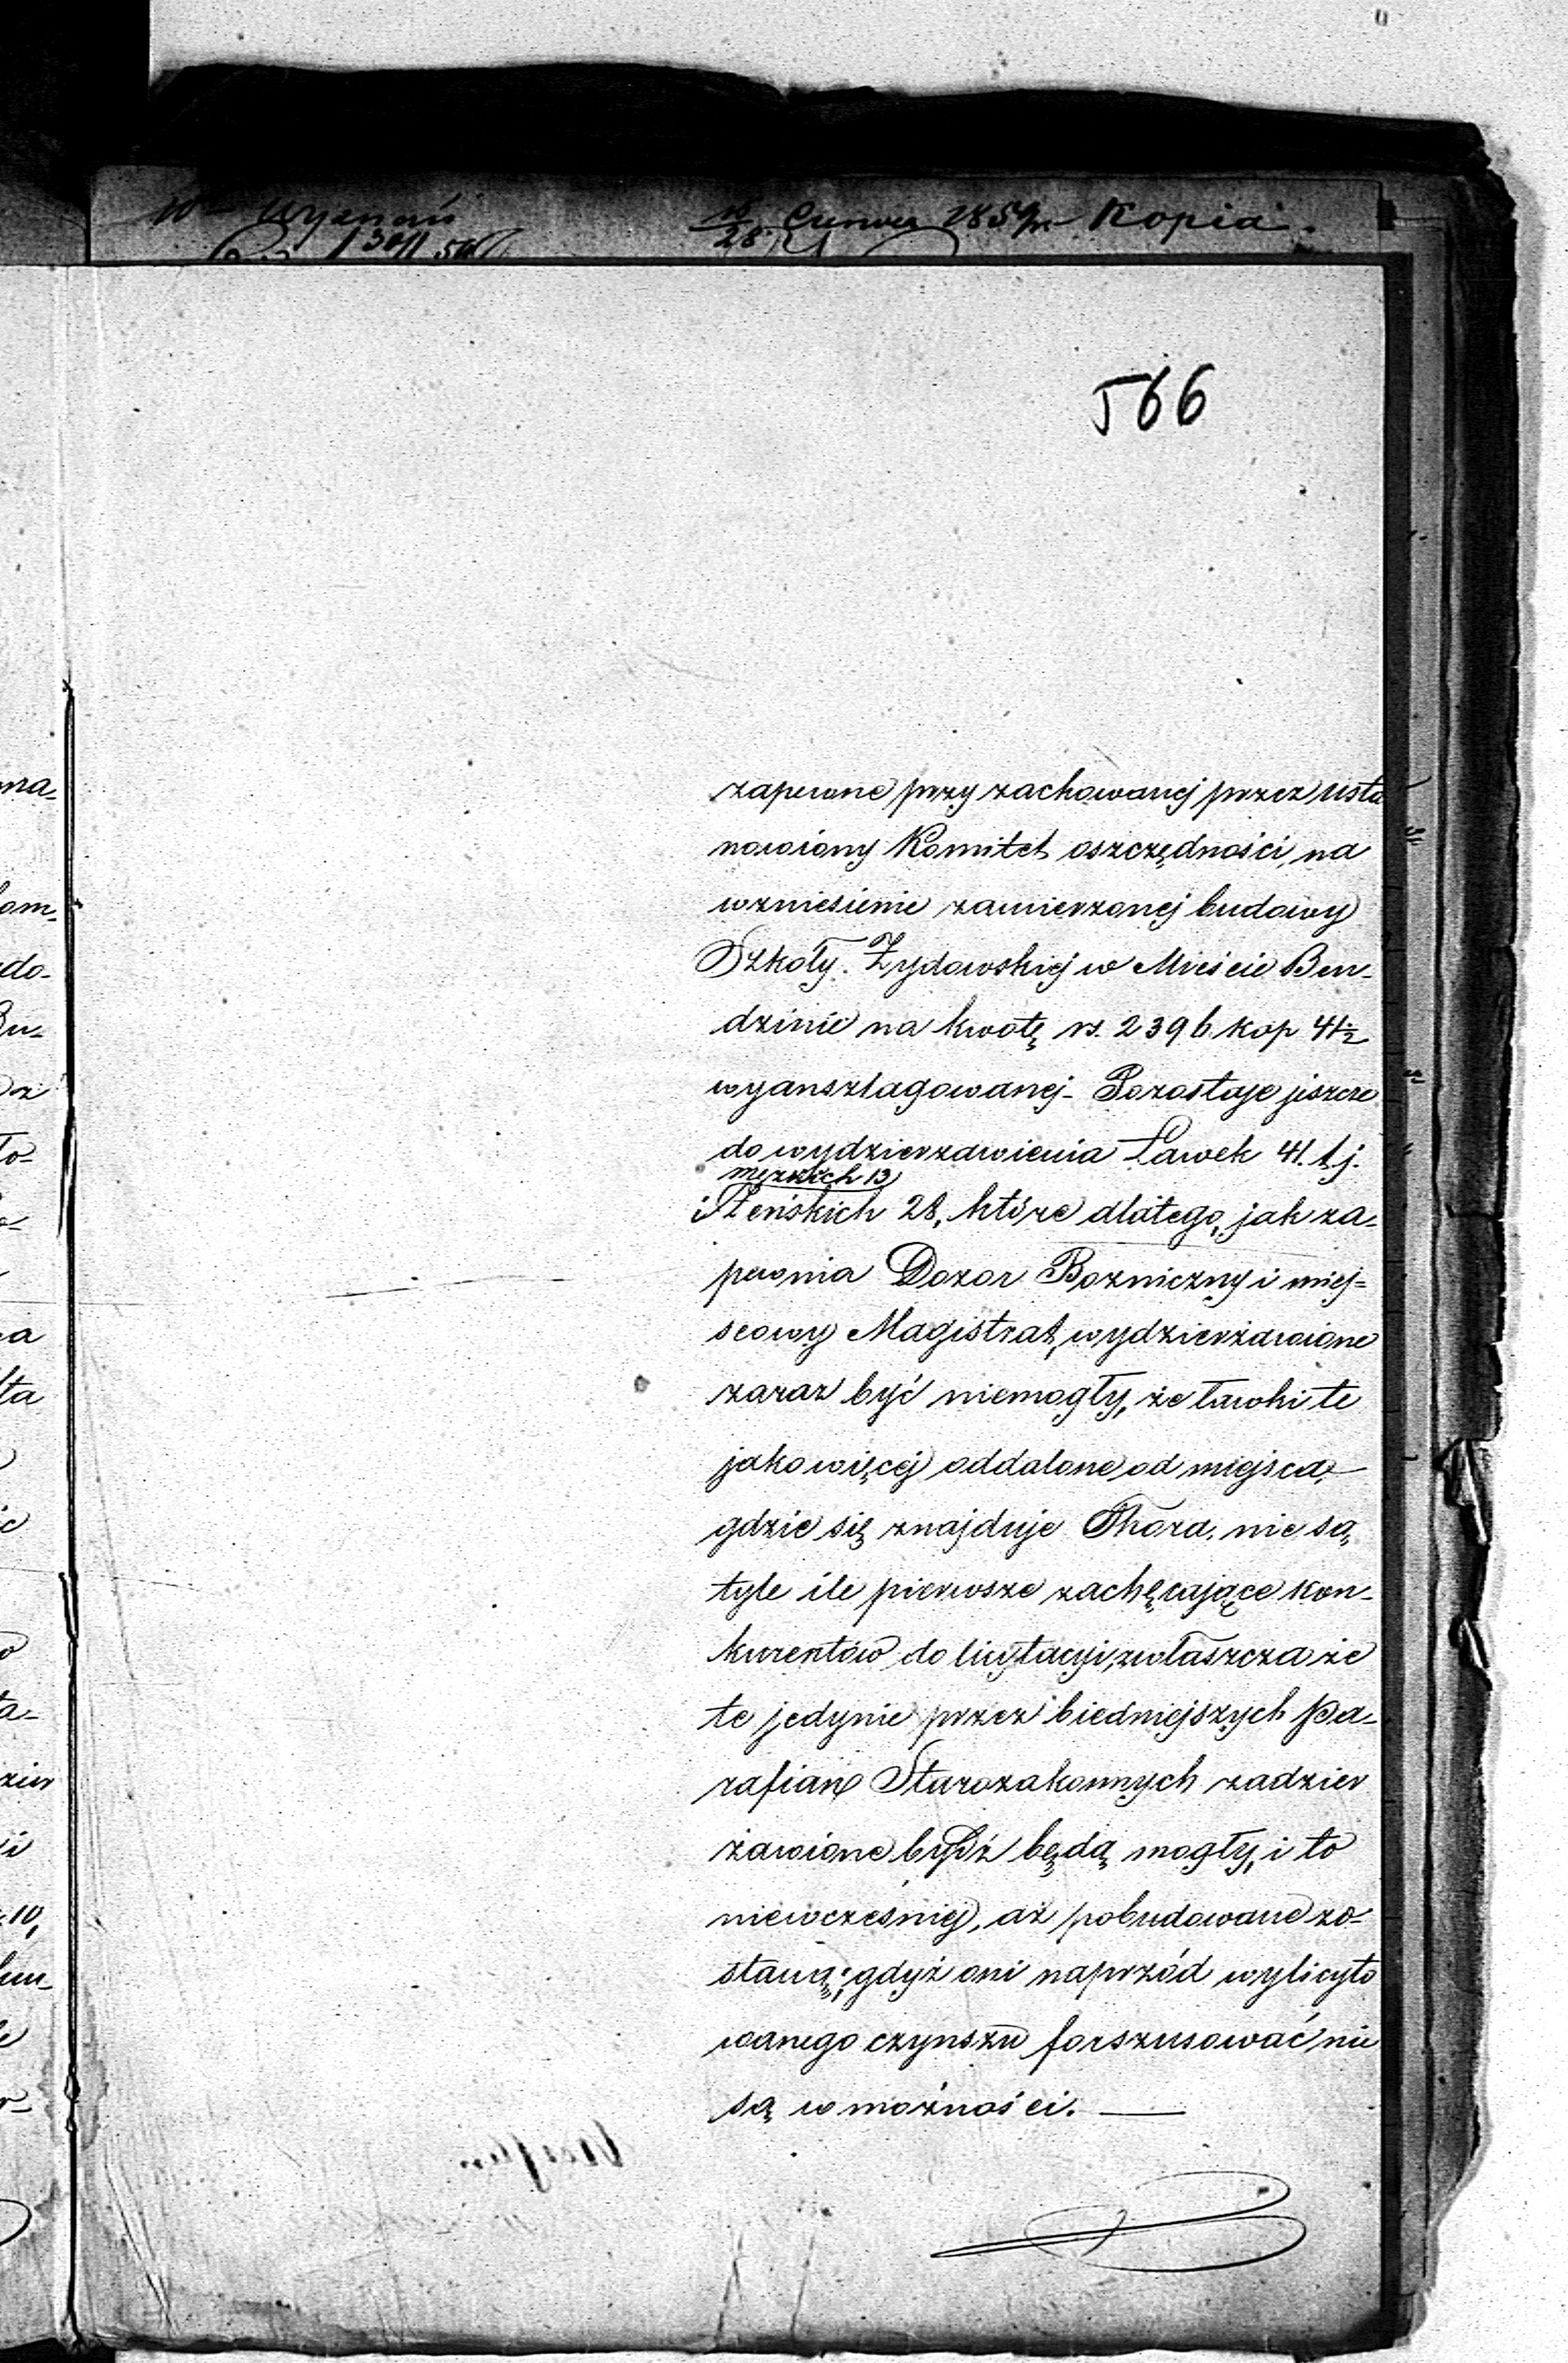 Wyznań
16/28 Czerwca 1859 r. Kopia.
566
zapewne przy zachowanej przez usta
nowiony Komitet oszczędności, na
wzniesienie zamierzonej budowy
Szkoły Żydowskiej w Mieście Ben-
dzinie na kwotę rs. 2396 kop 41½
wyanszlagowanej - Pozostaje jeszcze
do wydzierzawienia Ławek 41. t.j.
męzkich 13
i Żeńskich 28, które dlatego, jak za-
pewnia Dozor Bozniczny i miej-
scowy Magistrat, wydzierżawione
zaraz być niemogły, że ławki te
jako więcej oddalone od miejsca,
gdzie się znajduje Thora, nie są
tyle ile pierwsze zachęcające kon-
kurentów do licytacyi, zwłaszcza że
te jedynie przez biedniejszych Pa-
rafian Starozakonnych zadzier
żawione bydź będą mogły, i to
niewcześniej, aż pobudowane zo-
staną; gdyż oni naprzód wylicyto
wanego czynszu forszusować nie
są w możności. —
ona-
kom-
edo-
Bu-
to-
ta
ta-
zier
10,